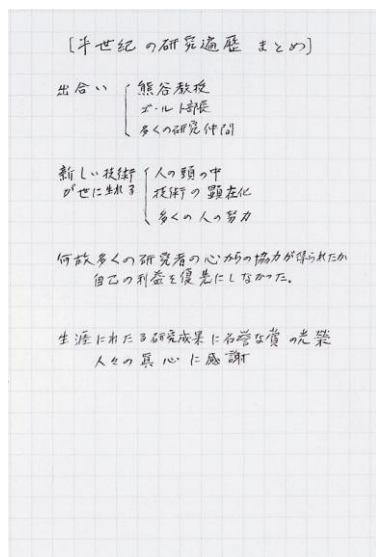 [半世紀の研究遍歴 まとめ]
出合い
熊谷教授
ゴールト部長
多くの研究仲間
新しい技術
が世に生れる
人の頭の中
技術の顕在化
多くの人の努力
何故多くの研究者の心からの協力が得られたか
自己の利益を優先にしなかった。
生涯にわたる研究成果に名誉な賞の光栄
人々の真心に感謝